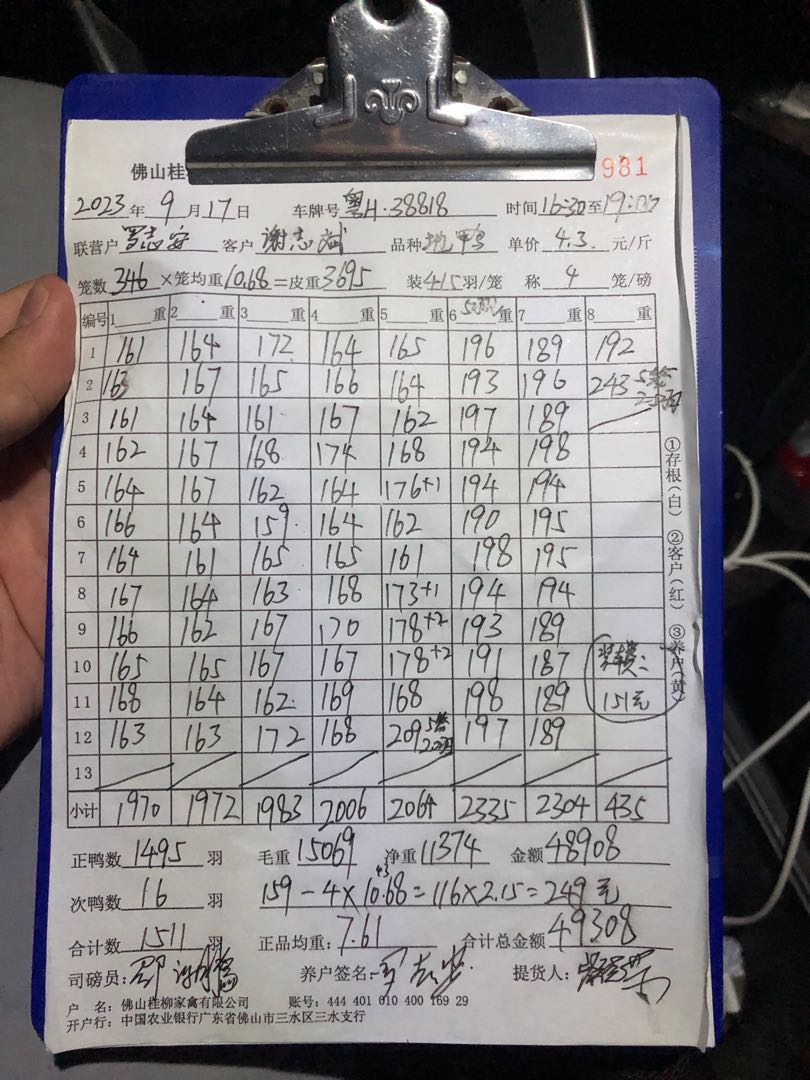 佛山桂 981
2023年9月17日 车牌号粤H·38818 时间16:30至19:00
联营户罗志安 客户谢志斌 品种地鸭 单价4.3元/斤
笼数346×笼均重10.68=皮重3695 装415羽/笼 称4笼/磅
编号 1重 2重 3重 4重 5重 6重 7重 8重
1 161 164 172 164 165 196 189 192
2 163 167 165 166 164 193 196 243 5笼
3 161 164 161 167 162 197 189
4 162 167 168 174 168 194 198
5 164 167 162 164 176+1 194 194
6 166 164 159 164 162 190 195
7 164 161 165 165 161 198 195
8 167 164 163 168 173+1 194 194
9 166 162 167 170 178+2 193 189
10 165 165 167 167 178+2 191 187
11 168 164 162 169 168 198 189 151元
12 163 163 172 168 209 5笼 197 189
13
小计 1970 1972 1983 2006 2064 2335 2304 435
①存根(白) ②客户(红) ③养户(黄)
正鸭数1495羽 毛重15069 净重11374 金额48908
次鸭数16羽 159-4×10.68=116×2.15=249元
43
合计数1511羽 正品均重:7.61 合计总金额49308
司磅员: 养户签名: 提货人:
户 名:佛山桂柳家禽有限公司 账号:444 401 010 400 169 29
开户行:中国农业银行广东省佛山市三水区三水支行